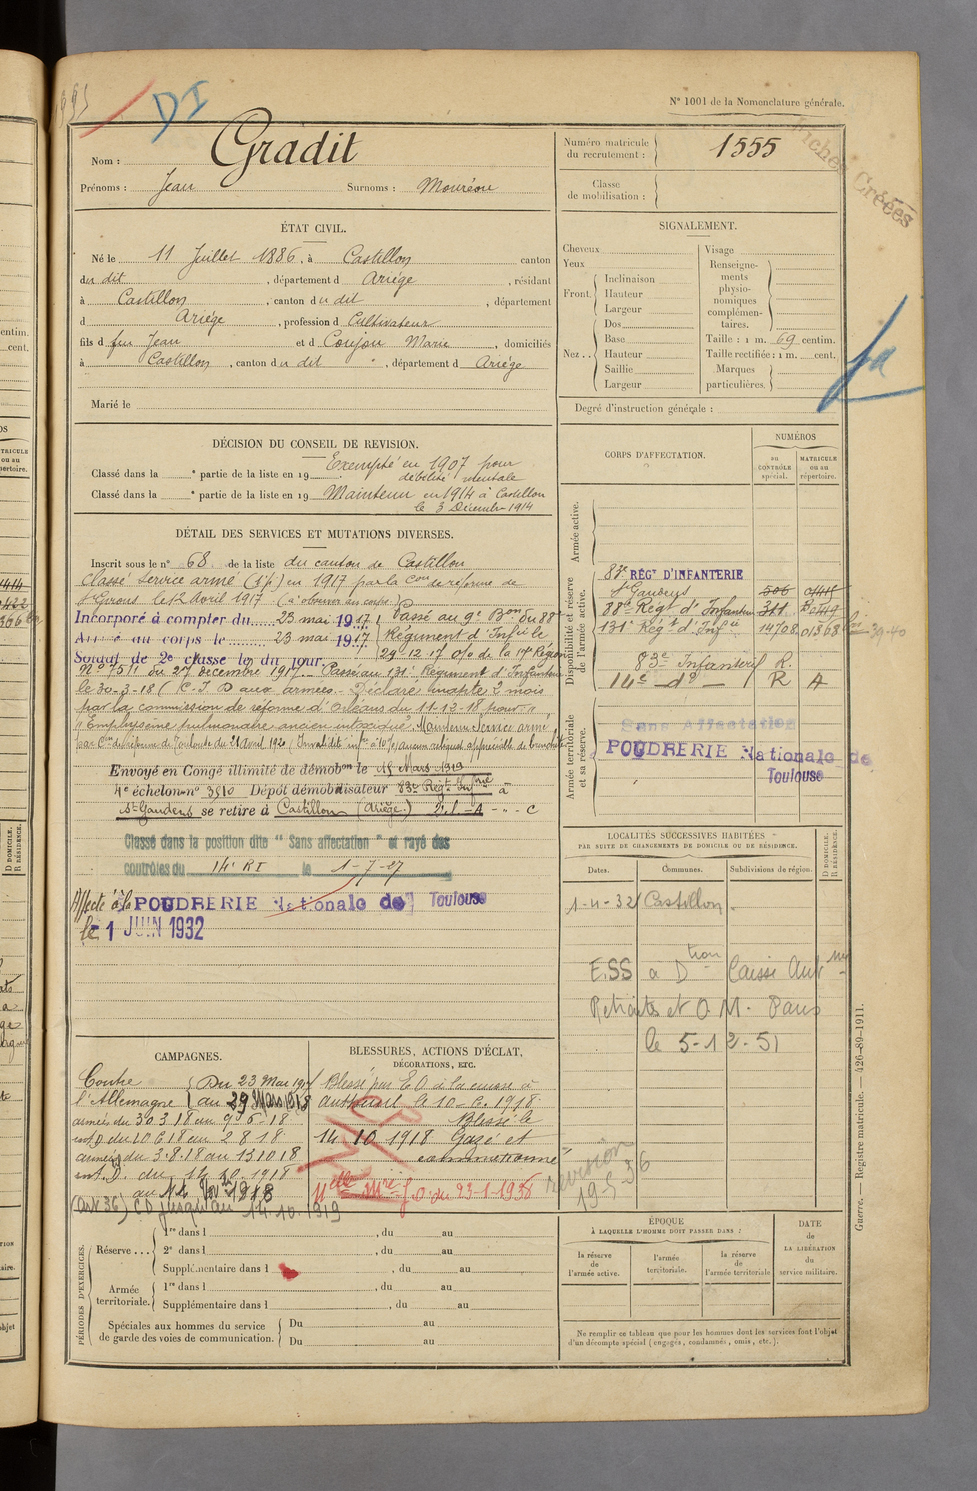 DI
N° 1001 de la Nomenclature générale.
Nom : Gradit
Prénoms : Jean Surnoms : Mouréou
Numéro matricule du recrutement : 1555
Classe de mobilisation :
Fiches Créées
ÉTAT CIVIL.
Né le 11 Juillet 1886, à Castillon canton
du dit, département d Ariége, résidant
à Castillon, canton du dit, département
d Ariége, profession d Cultivateur
fils d feu Jean et d Coujou Marie, domiciliés
à Castillon, canton du dit, département d Ariége
Marié le
SIGNALEMENT.
Cheveux
Yeux
Front. Inclinaison
Hauteur
Largeur
Nez .. Dos
Base
Hauteur
Saillie
Largeur
Visage
Renseignements physionomiques complémentaires.
Taille : 1 m. 69 centim.
Taille rectifiée : 1 m. cent.
Marques particulières.
Degré d'instruction générale :
DÉCISION DU CONSEIL DE REVISION.
Classé dans la e partie de la liste en 19 Exempté en 1907 pour
débilité mentale
Classé dans la e partie de la liste en 19 Maintenu en 1914 à Castillon
le 3 Décembre 1914
DÉTAIL DES SERVICES ET MUTATIONS DIVERSES.
Inscrit sous le n° 68 de la liste du canton de Castillon
Classé Service armé en 1917 par la Con de réforme de
St Girons le 12 Avril 1917 (à observer au corps)
Incorporé à compter du 23 mai 1917 Passé au 9e Bon du 88e
Arrivé au corps le 23 mai 1917 Régiment d'Infie le
Soldat de 2e classe le dit jour. 29 12 17 o/o de la 17e Région
N° 7511 du 27 décembre 1917. Passé au 131e Régiment d'Infanterie
le 30-3-18 (C.I.D aux armées. Déclaré inapte 2 mois
par la commission de réforme d'Orléans du 11-12-18 pour "
"Emphysème pulmonaire ancien intoxiqué" Maintenu Service armé
Envoyé en Congé illimité de démobon le 15 Mars 1919
4e échelon n° 3510 Dépôt démobilisateur 83e Régt Infrie à
St Gaudens se retire à Castillon (Ariége)
Classé dans la position dite "Sans affectation" et rayé des
contrôles du 14e RI le 1-7-17
Affecté à la POUDRERIE Nationale de Toulouse
le 1 JUIN 1932
CORPS D'AFFECTATION.
NUMÉROS
au CONTRÔLE spécial.
MATRICULE ou au répertoire.
Armée active.
Disponibilité et réserve de l'armée active.
83e RÉGT D'INFANTERIE
St Gaudens
88e Régt d'Infanterie
131e Régt d'Infie 14708 01368
83e Infanterie R.
14e — do — R A
Armée territoriale et sa réserve.
Sans Affectation
POUDRERIE Nationale de
Toulouse
LOCALITÉS SUCCESSIVES HABITÉES
PAR SUITE DE CHANGEMENTS DE DOMICILE OU DE RÉSIDENCE.
Dates. Communes. Subdivisions de région.
D DOMICILE. R RÉSIDENCE.
1-4-32 Castillon
ESS a Dtion Caisse Autme
Retraites et O M. Paris
le 5-12-51
CAMPAGNES.
Contre Du 23 Mai 1917
l'Allemagne au 29 Mars 1918
armées du 30 3 18 au 9 6 18
int D du 10 6 18 au 2 8 18
armées du 3.8.18 au 13 10 18
int. D. du 14 10 1918
au 11 Nov 1918
(Art 36) CD jusqu'au 14.10.1919
BLESSURES, ACTIONS D'ÉCLAT,
DÉCORATIONS, ETC.
Blessé par E.O à la cuisse à
Autheuil le 10-6-1918.
Blessé le
14 10 1918 Gazé et
commotionné
Mlle Mre J.O. du 23-1-1936
révision
19 5 36
PÉRIODES D'EXERCICES.
Réserve ... 1re dans l , du au
2e dans l , du au
Supplémentaire dans l , du au
Armée territoriale. 1re dans l , du au
Supplémentaire dans l , du au
Spéciales aux hommes du service de garde des voies de communication. Du au
Du au
ÉPOQUE
À LAQUELLE L'HOMME DOIT PASSER DANS :
la réserve de l'armée active.
l'armée territoriale.
la réserve de l'armée territoriale
DATE DE LA LIBÉRATION du service militaire.
Ne remplir ce tableau que pour les hommes dont les services font l'objet
d'un décompte spécial (engagés, condamnés, omis, etc.).
Guerre. — Registre matricule. — 426-89-1911.